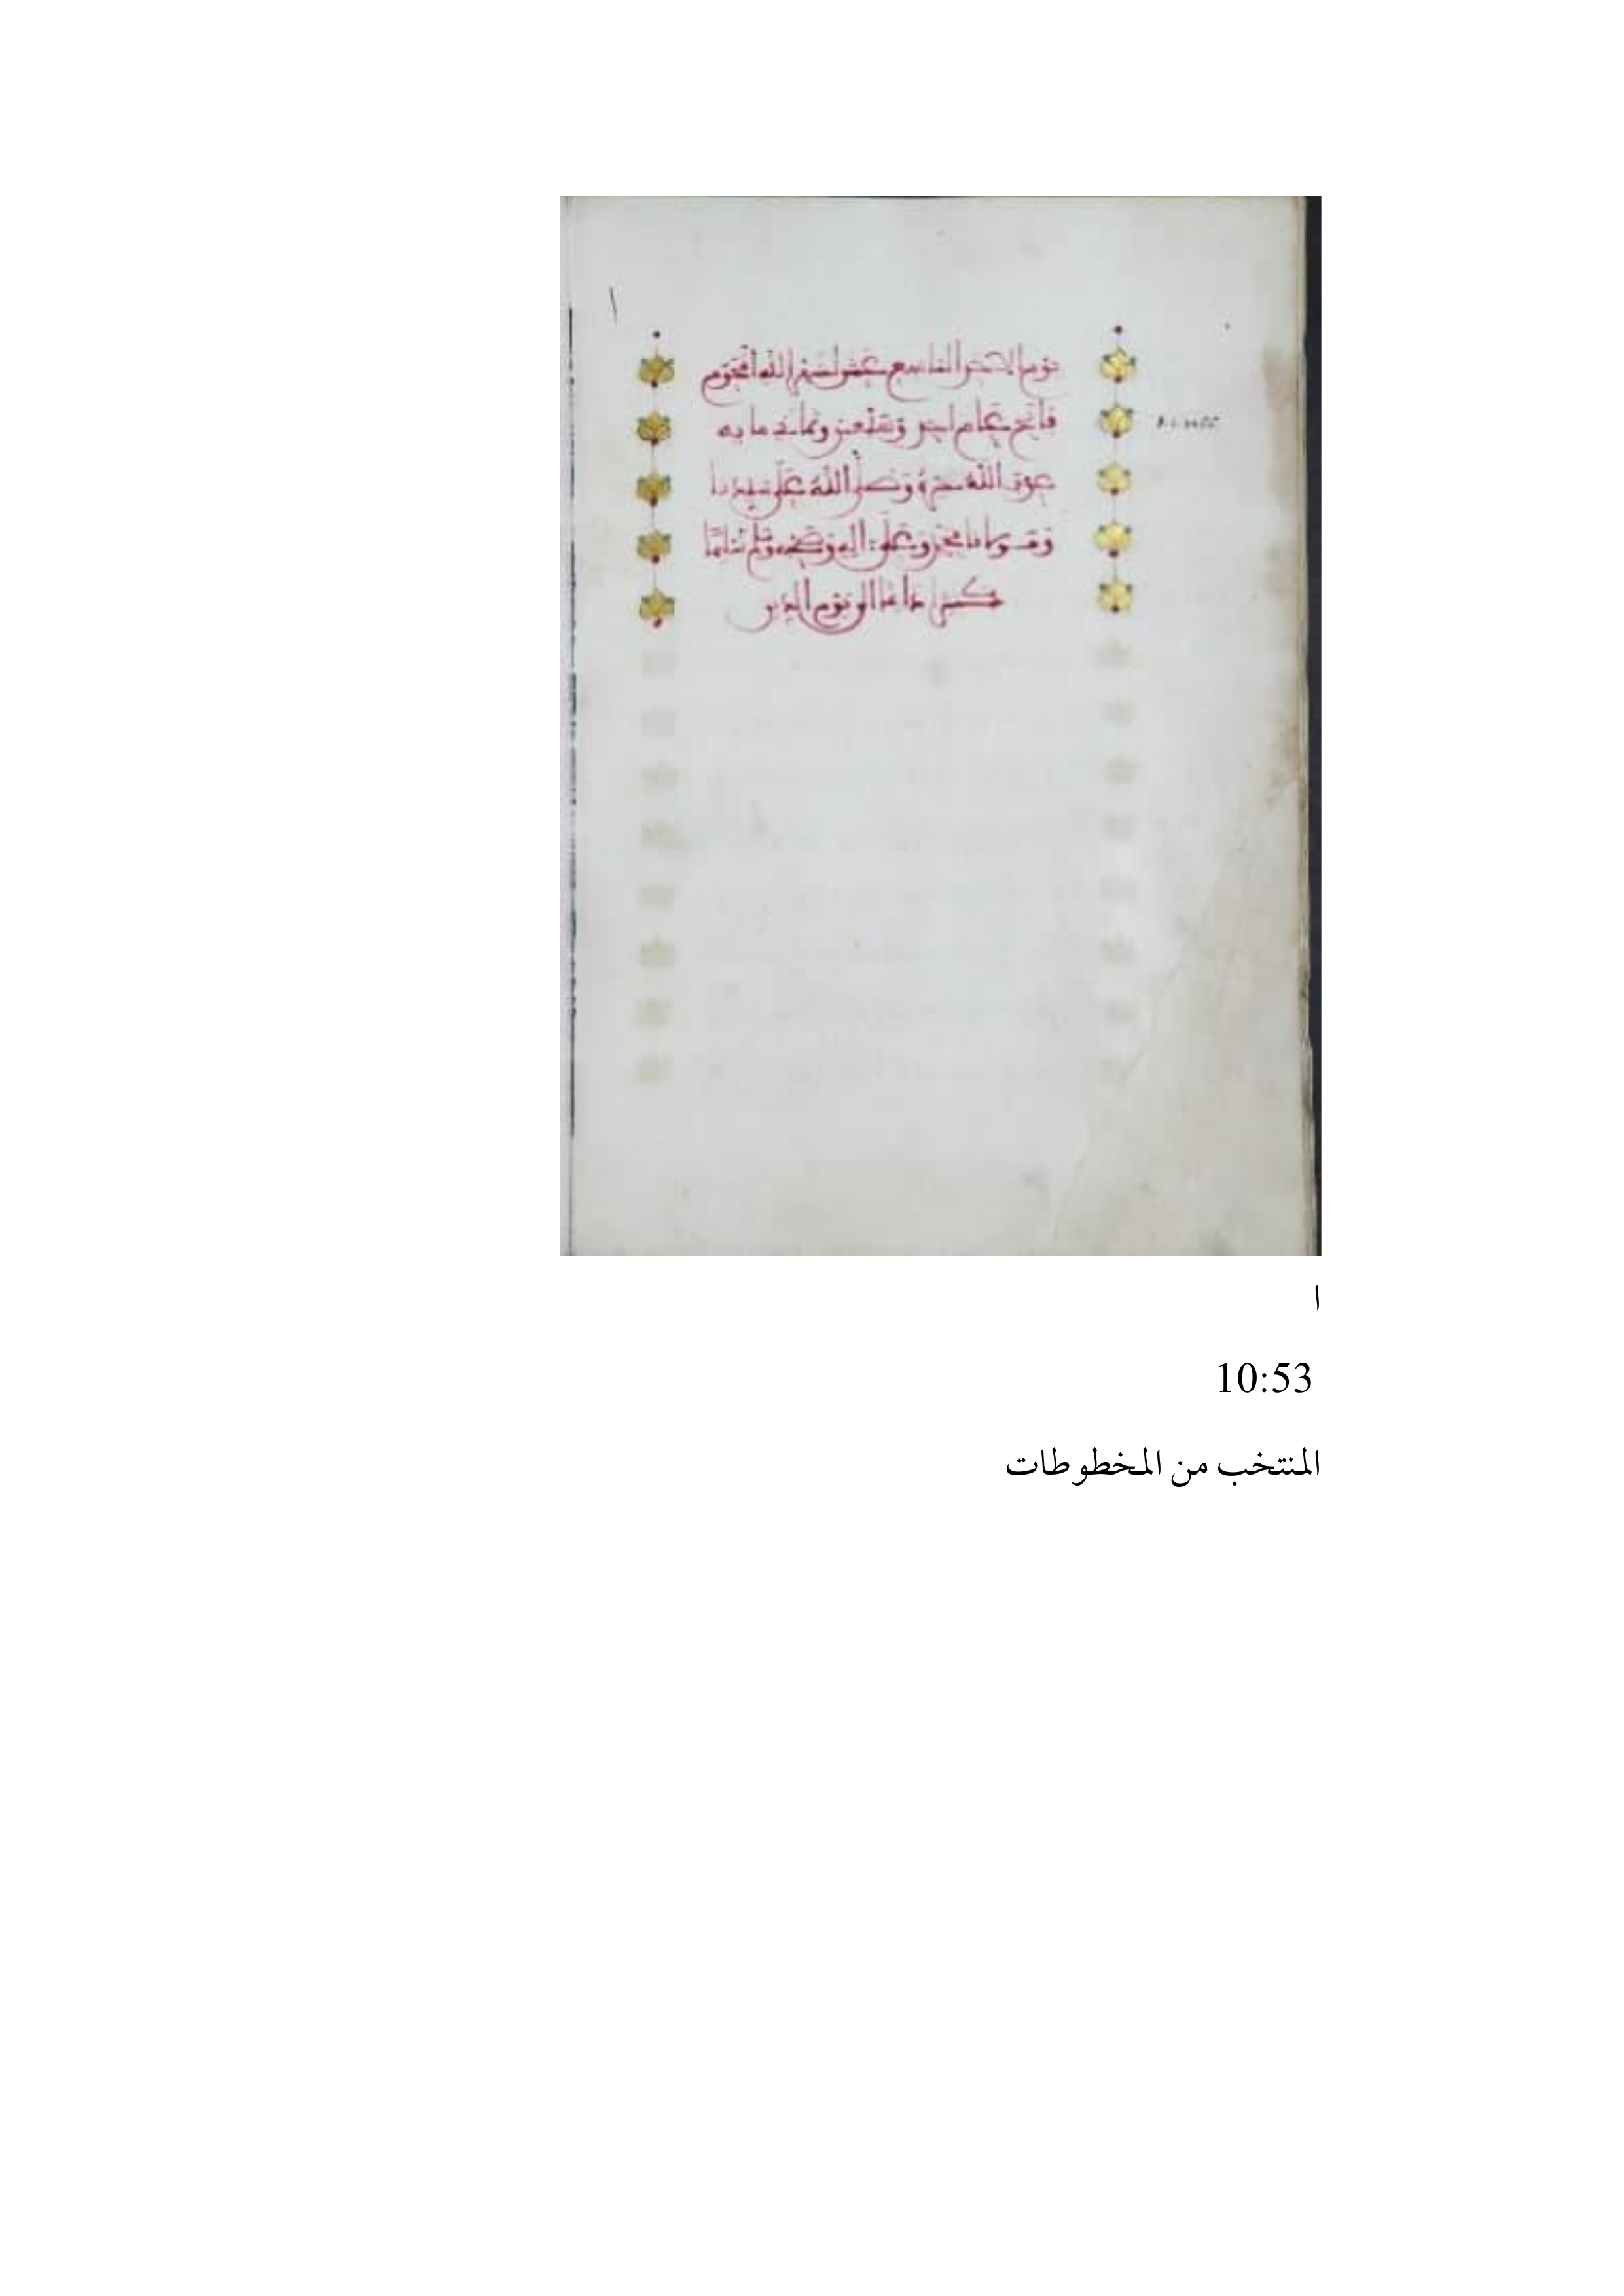 يوم الاحد التاسع عشر لشهر الله المحرم
فاتح عام احد وتسعين وثمانية ماية
عرف الله خيره وصلى الله على سيدنا
ومولانا محمد وعلى اله وصحبه وسلم تسليما
كثيرا دائما الى يوم الدين
ا
10:53
المنتخب من المخطوطات